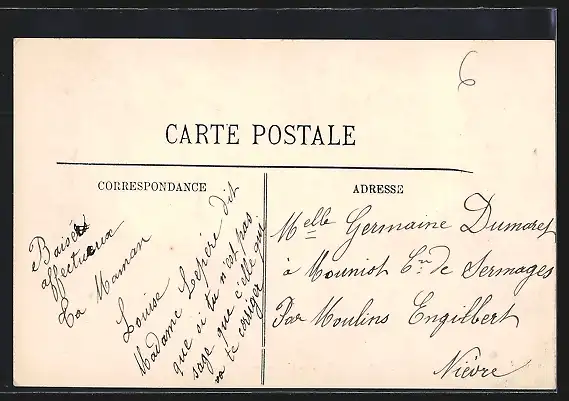 6
CARTE POSTALE
CORRESPONDANCE
Baisers
affectueux
Ta Maman
Louise
Madame Lepère dit
que si tu n'est pas
sage que c'elle qui
va te corriger
ADRESSE
Melle Germaine Dumaret
à Mouniot Cne de Sermages
Par Moulins Engilbert
Nièvre